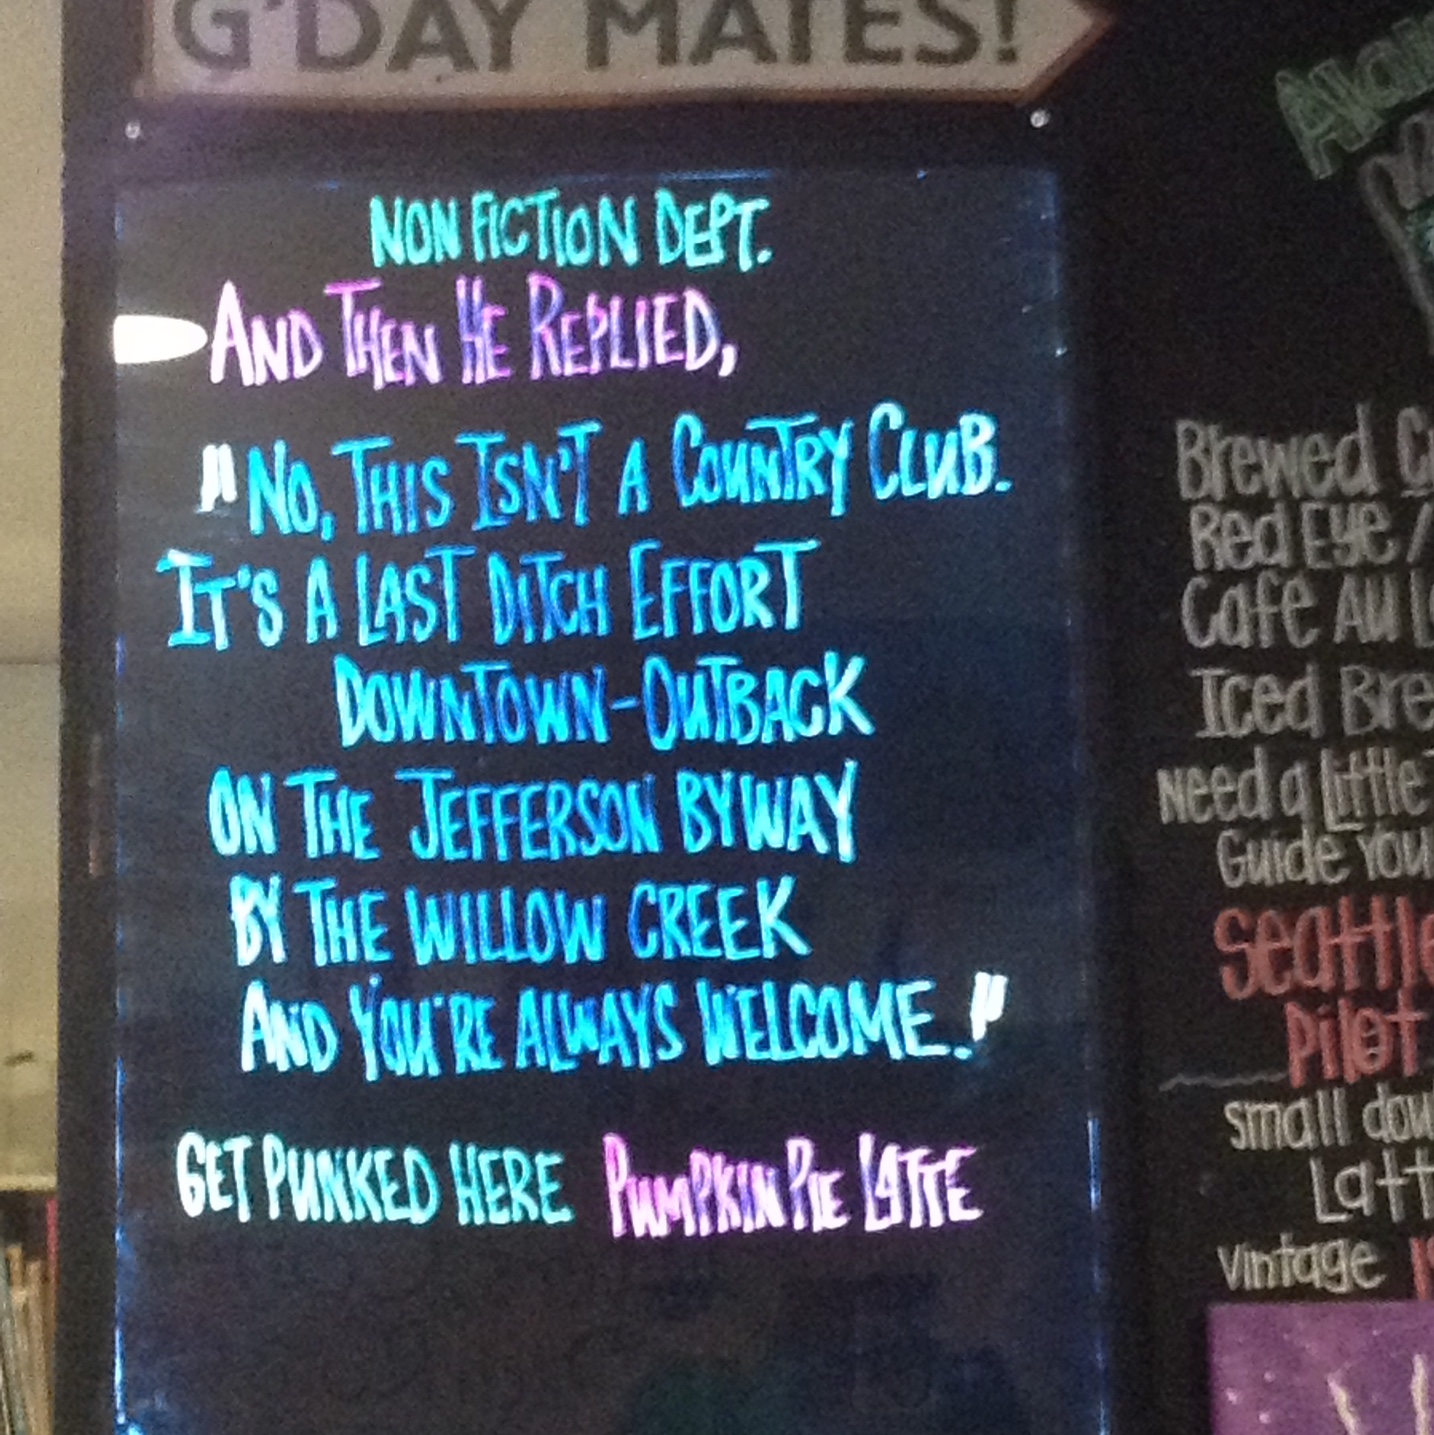 G'DAY MATES!
NON FICTION DEPT.
AND THEN HE REPLIED,
"NO, THIS ISN'T A COUNTRY CLUB.
IT'S A LAST DITCH EFFORT
DOWNTOWN-OUTBACK
ON THE JEFFERSON BYWAY
BY THE WILLOW CREEK
AND YOU'RE ALWAYS WELCOME."
GET PUNKED HERE PUMPKIN PIE LATTE
Brewed
Red Eye /
Café Au
Iced
Need a Little
Guide You
Seattle
Pilot
small
vintage